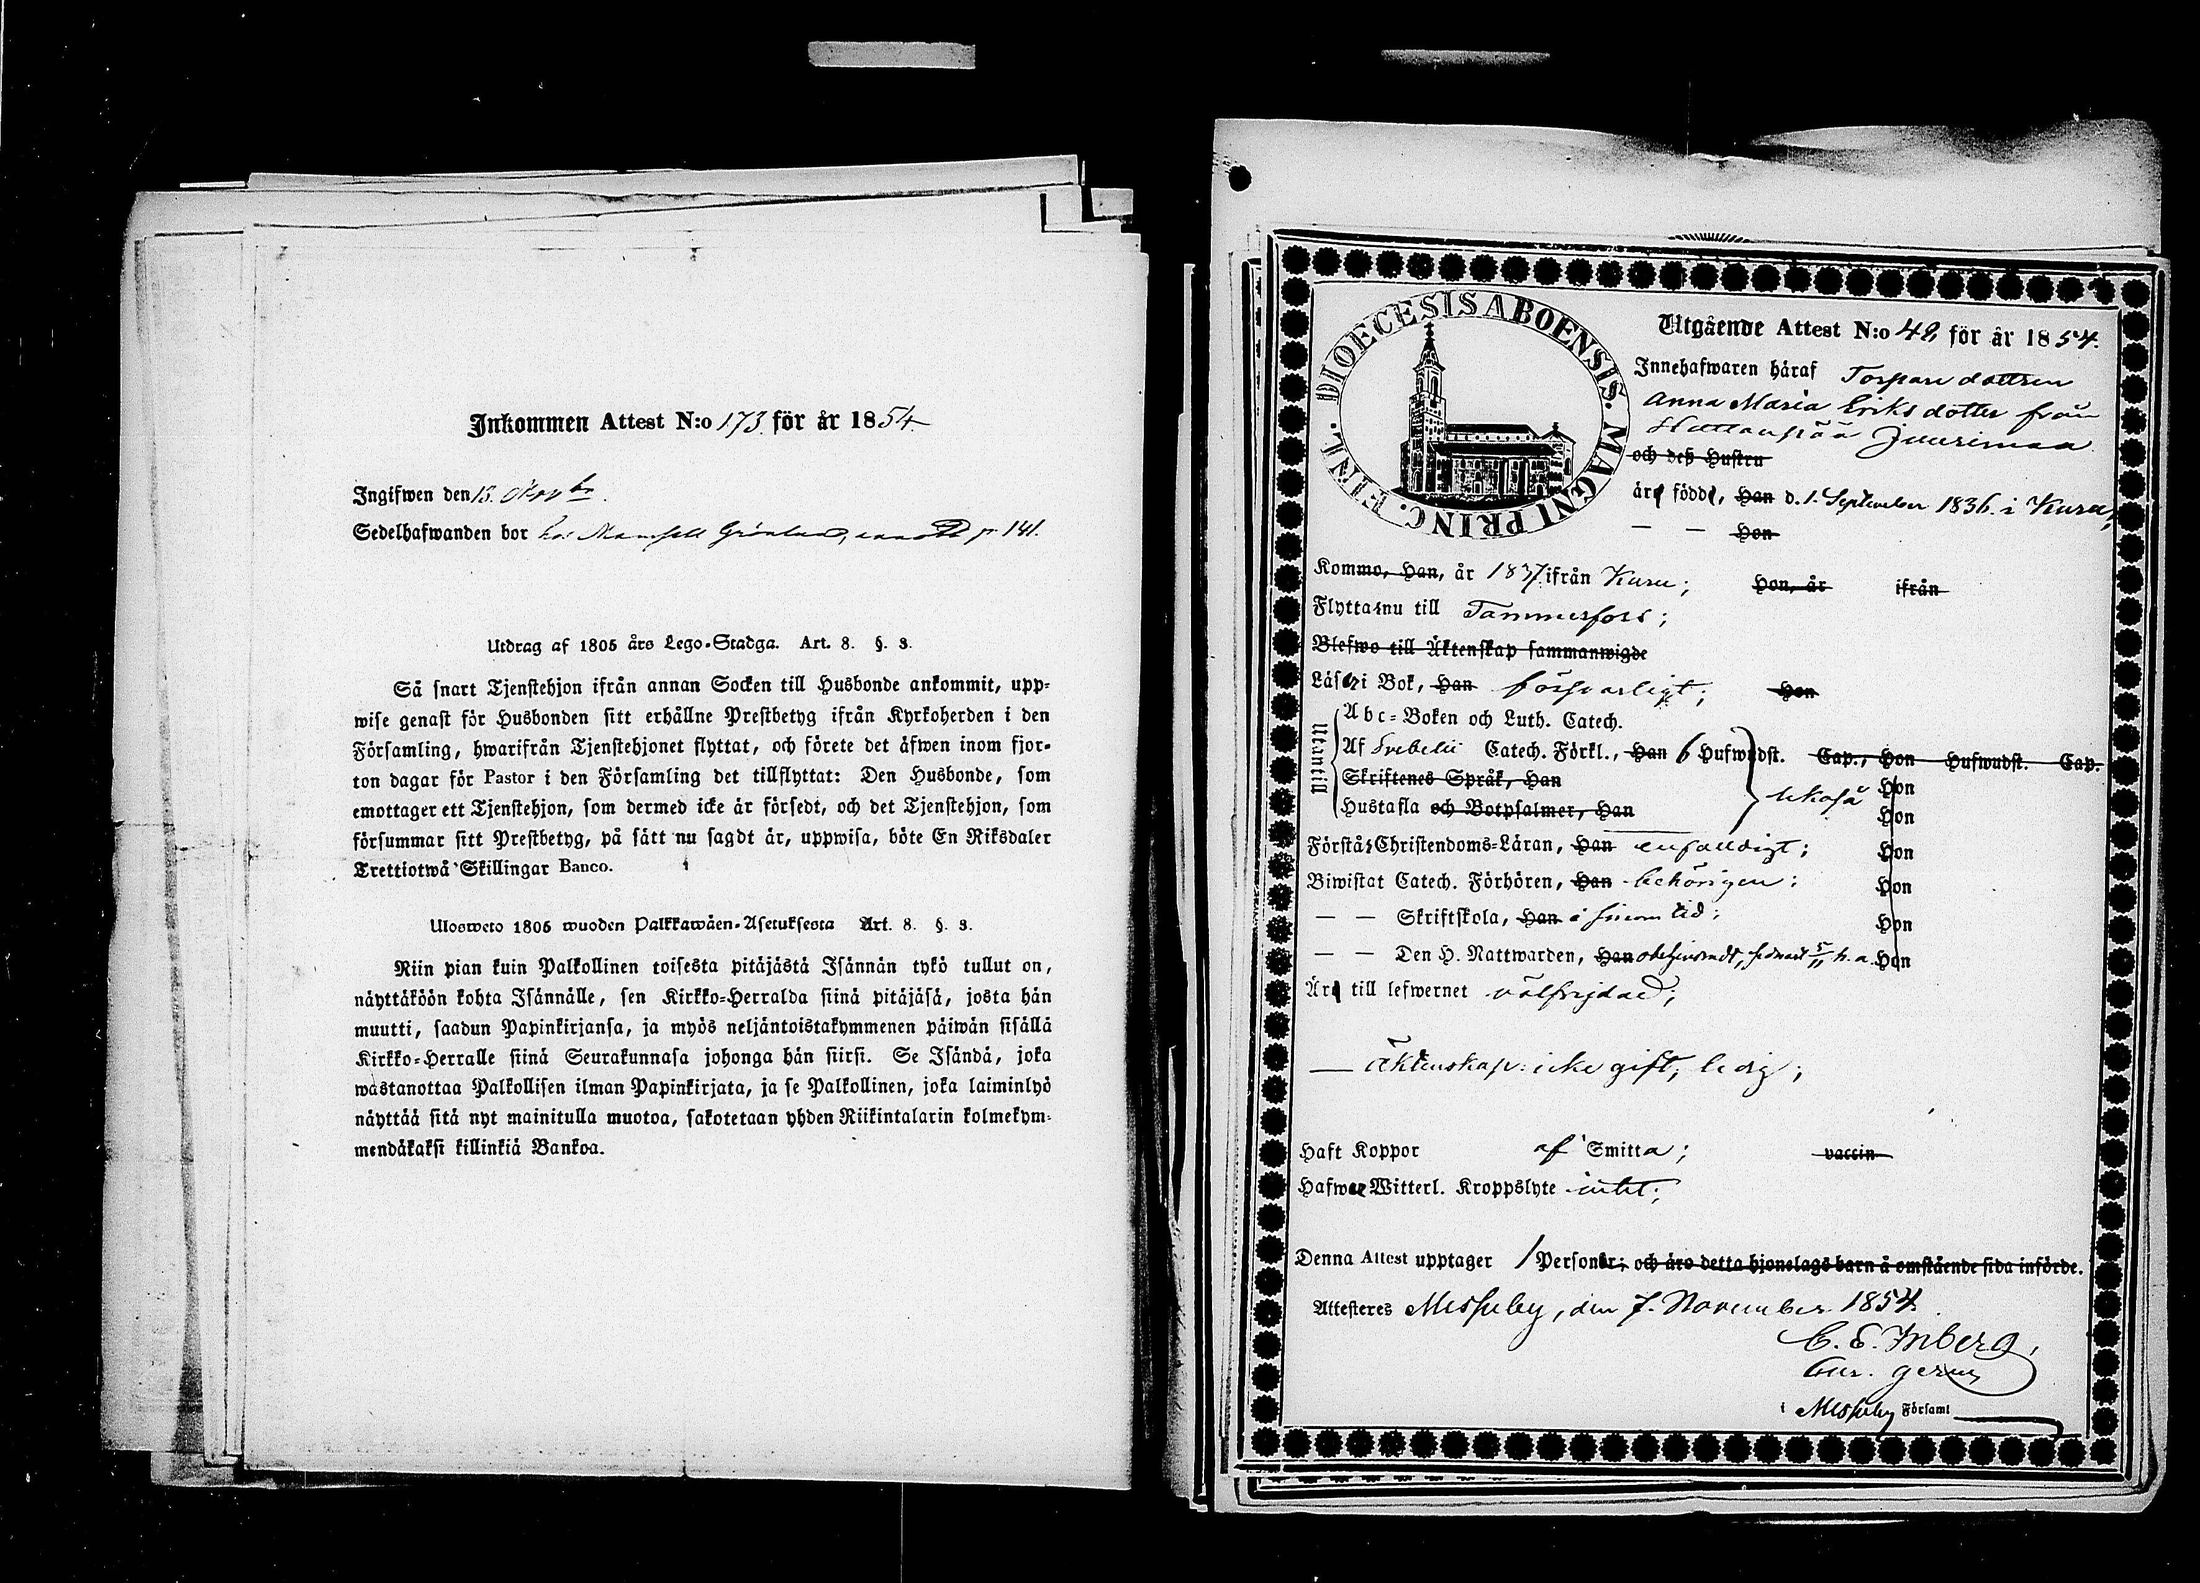 Inkommen Attest N:o 173. för år 1854
Ingifwen den 13.
Sedelhafwanden bor hos Mamsell Grönlund, p 141.
Utdrag af 1805 års Lego-Stadga. Art. 8. §. 3.
Så snart Tjenstehjon ifrån annan Socken till Husbonde ankommit, upp-
wise genast för Husbonden sitt erhållne Prestbetyg ifrån Kyrkoherden i den
Församling, hwarifrån Tjenstehjonet flyttat, och förete det äfwen inom fjor-
ton dagar för Pastor i den Församling det tillflyttat: Den Husbonde, som
emottager ett Tjenstehjon, som dermed icke är försedt, och det Tjenstehjon, som
försummar sitt Prestbetyg, på sätt nu sagdt är, uppwisa, böte En Riksdaler
Trettiotwå Skillingar Banco.
Ulosweto 1805 wuoden Palkkawäen-Asetuksesta Art. 8. §. 3.
Niin pian kuin Palkollinen toisesta pitäjästä Isännän tykö tullut on,
näyttäköön kohta Isännälle, sen Kirkko-Herralda siinä pitäjäsä, josta hän
muutti, saadun Papinkirjansa, ja myös neljäntoistakymmenen päiwän sisällä
Kirkko-Herralle siinä Seurakunnasa johonga hän siirsi. Se Isändä, joka
wastanottaa Palkollisen ilman Papinkirjata, ja se Palkollinen, joka laiminlyö
näyttää sitä nyt mainitulla muotoa, sakotetaan yhden Riikintalarin kolmekym-
mendäkaksi killinkiä Bankoa.
DIOECESIS ABOENSIS. MAGNI PRINC. FINL.
Utgående Attest N:o 48 för år 1854.
Innehafwaren häraf Torparedottren
Anna Maria Eriksdotter från
Juurimaa
och deß Hustru
är född, Han d. 1. September 1836. i Kuru,
— — Hon
Kommo, Han, år 1837. ifrån Kuru; Hon, år ifrån
Flyttar nu till Tammerfors;
Blefwo till Äktenskap sammanwigde
Läser i Bok, Han försvarligt; Hon
Utanell
Abc-Boken och Luth. Catech.
Af Svebelii Catech. Förkl., Han 6 Hufwudst. Cap., Hon Hufwudst. Cap.
Skriftenes Språk, Han Hon
Hustafla och Botpsalmer, Han likaså Hon
Förstår Christendoms-Läran, Han enfaldigt; Hon
Biwistat Catech. Förhören, Han behörigen; Hon
— — Skriftskola, Han i sinom tid; Hon
— — Den H. Nattwarden, Han 5/11 h. a. Hon
Är till lefwernet välfrejdad;
— Äktenskap: icke gift, ledig;
Haft Koppor af Smitta; vaccin
Hafwer Witterl. Kroppslyte intet;
Denna Attest upptager 1 Person; och äro detta hjonelags barn å omstående sida införde.
Attesteres Messuby, den 7. November 1854.
C. E. Inberg,
i Messuby Församl